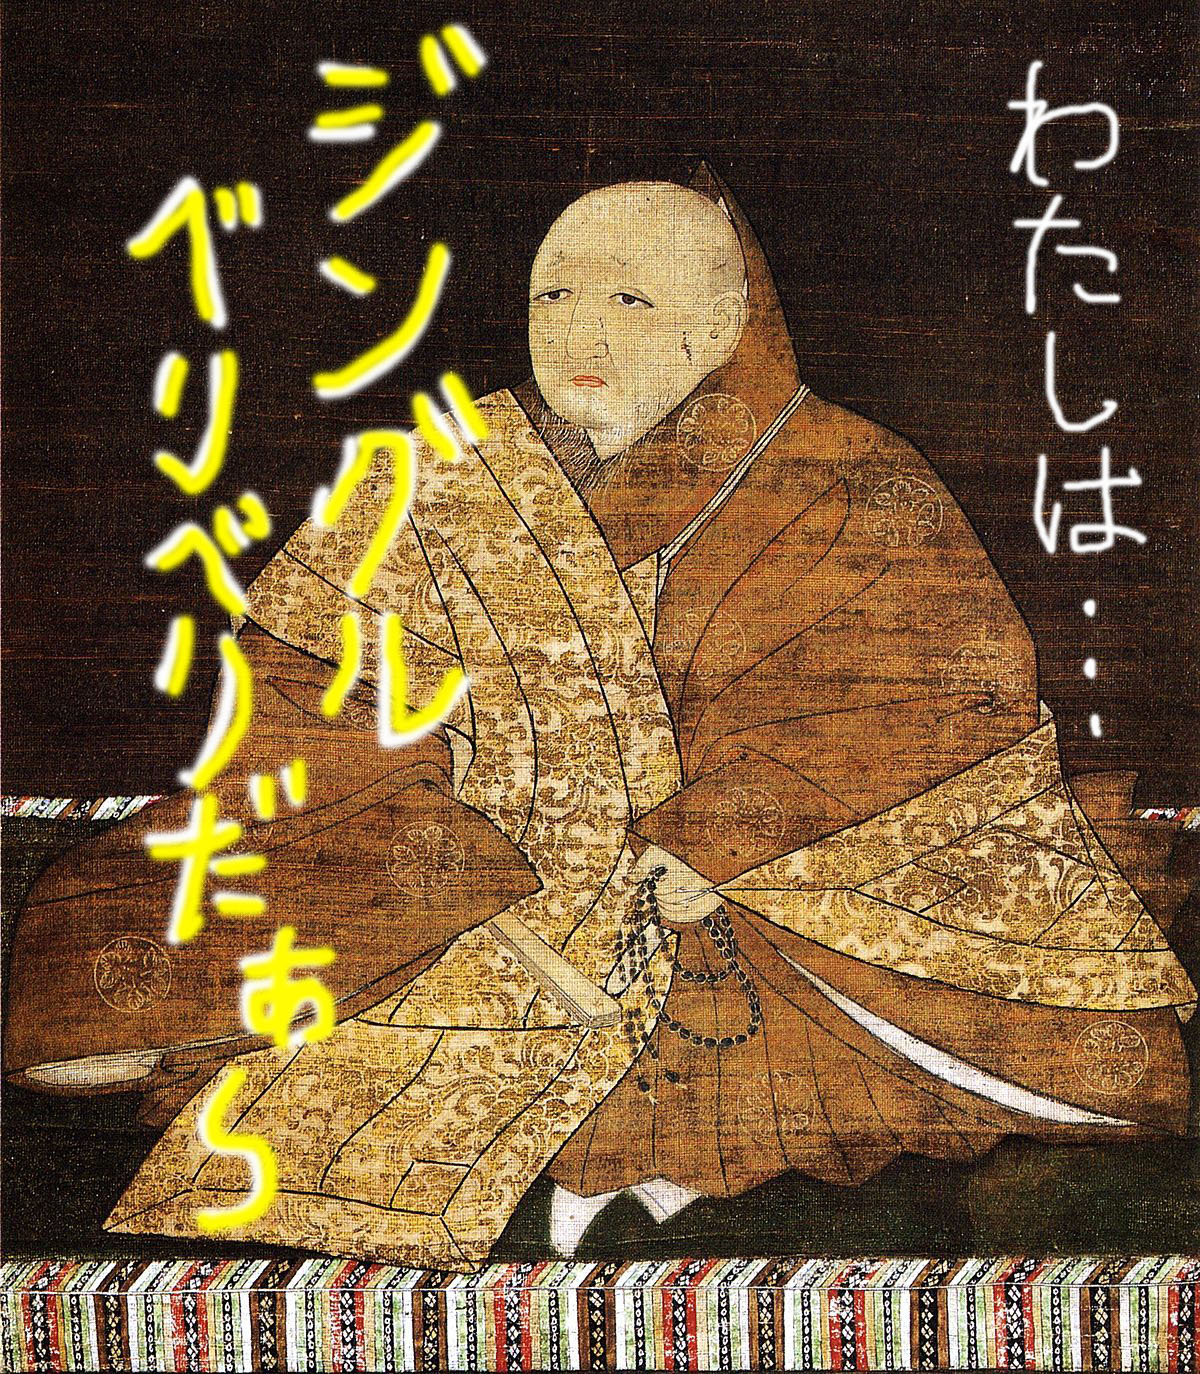 わたしは…
ジングル
べリベリだぁら